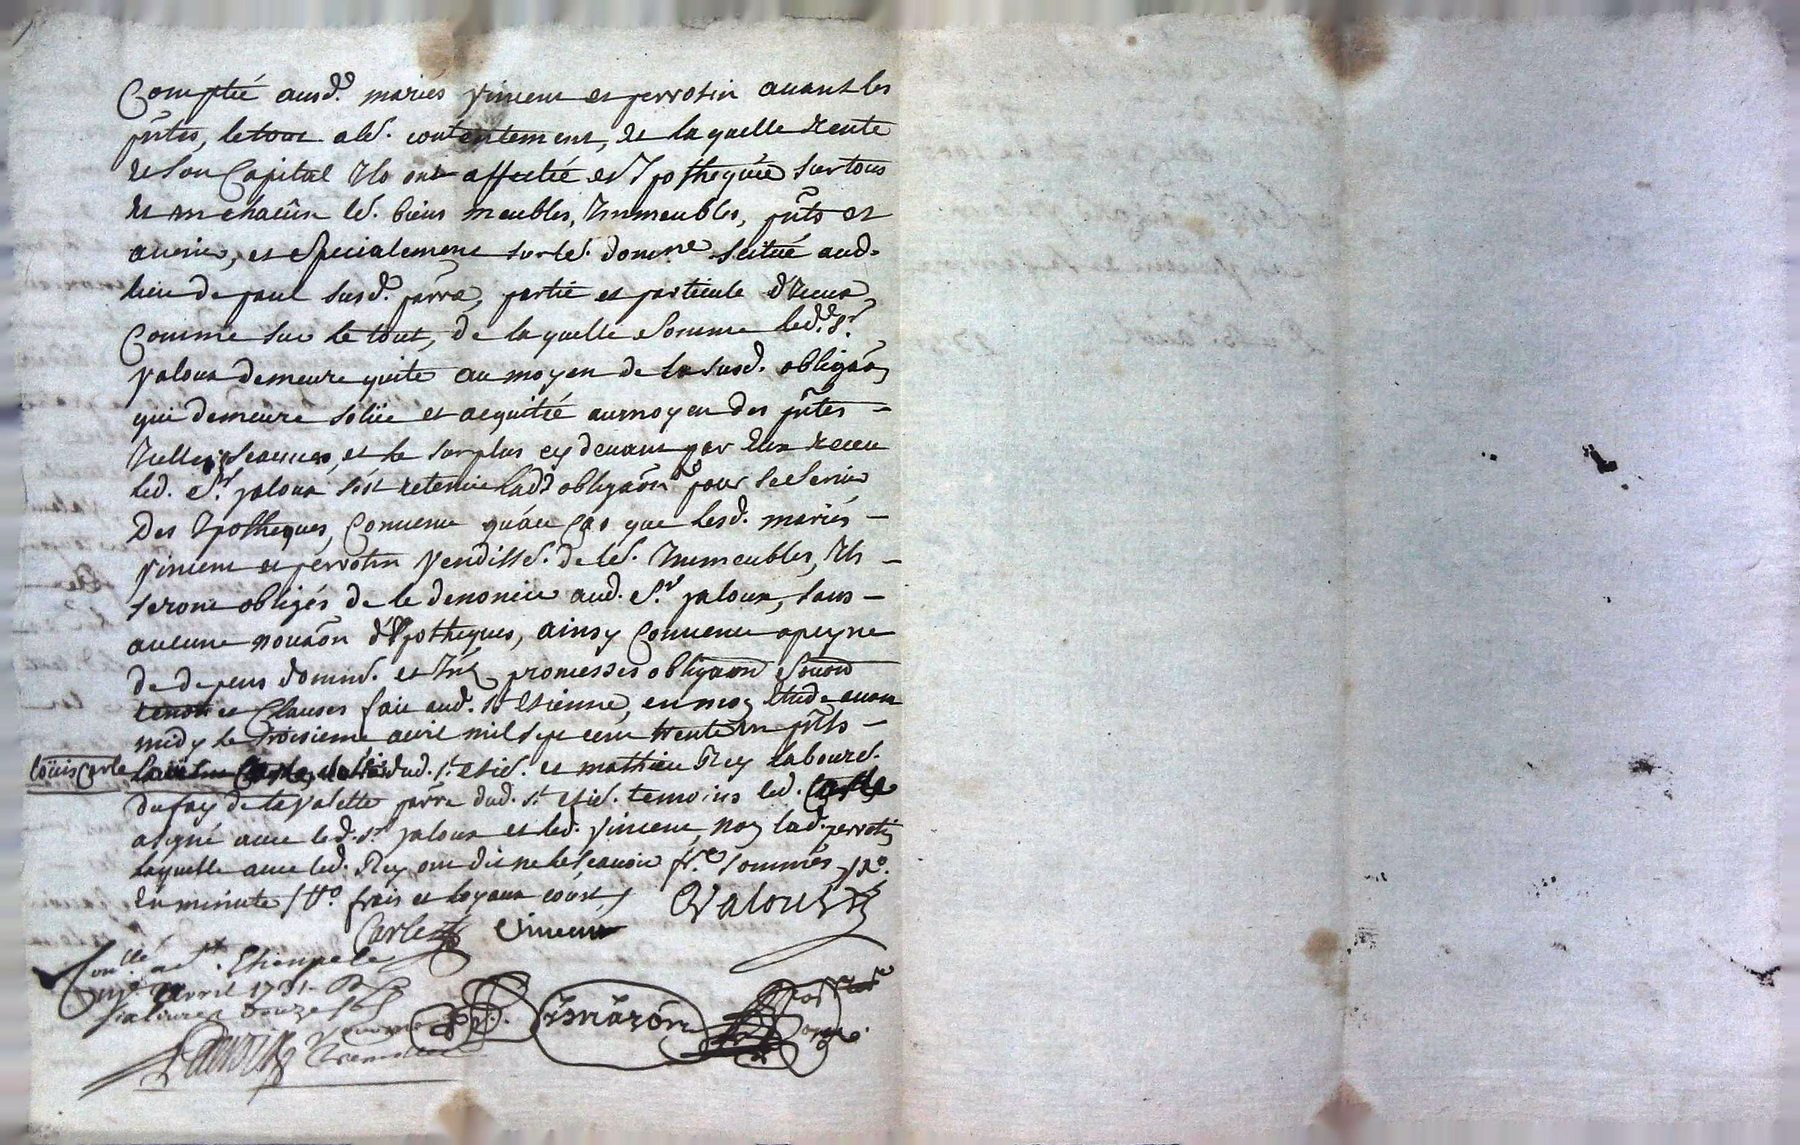 Comptée ausd. mariés Vincent et perrotin avant les
pntes, le tout a led. contentement, de laquelle rente
et son Capital Ils ont affecté et Ipothequée sur tous
et un chacun led. biens meubles, Immeubles, pnts et
avenir, et specialement sur le d. domne scitué aud.
lieu de paul susd. parre, partie et particule d'Iceux,
Comme sur le tout, de laquelle somme led. Sr.
jaloux demeure quite au moyen de la susd. obligaon
qui demeure solüe et acquitée au moyen des pntes
et le surplus cy devant par Eux receu
led. Sr. jaloux s'est retenüe lad. obligaon pour se servir
Des Ipotheques, Convenu qu'au Cas que lesd. mariés
Vincent et perrotin Vendisse. de led. Immeubles, Ils
seront obligés de le denoncer aud. Sr. jaloux, sans
aucune novaon d'Ipotheques, ainsy Convenu a peyne
de depens domms. et promesses obligaon
et Clauses fait aud. St. Etienne, en moy Etude avant
midy le troisieme avril mil sept cent trente un pnts
Loüis Carle dud. St. etie. et mathieu Rey labourd.
du fay de la Valette parre dud. St. etie. temoins led. Carle
a signé avec led. Sr. jaloux et led. Vincent, non lad. perrotin
laquelle avec led. Rey ont dit ne le scavoir sommés
En minute frais et loyaux
Jaloux
Carle Vincent
Conllé. a St. Etienne le
avril 1731. R.
livres douze sols